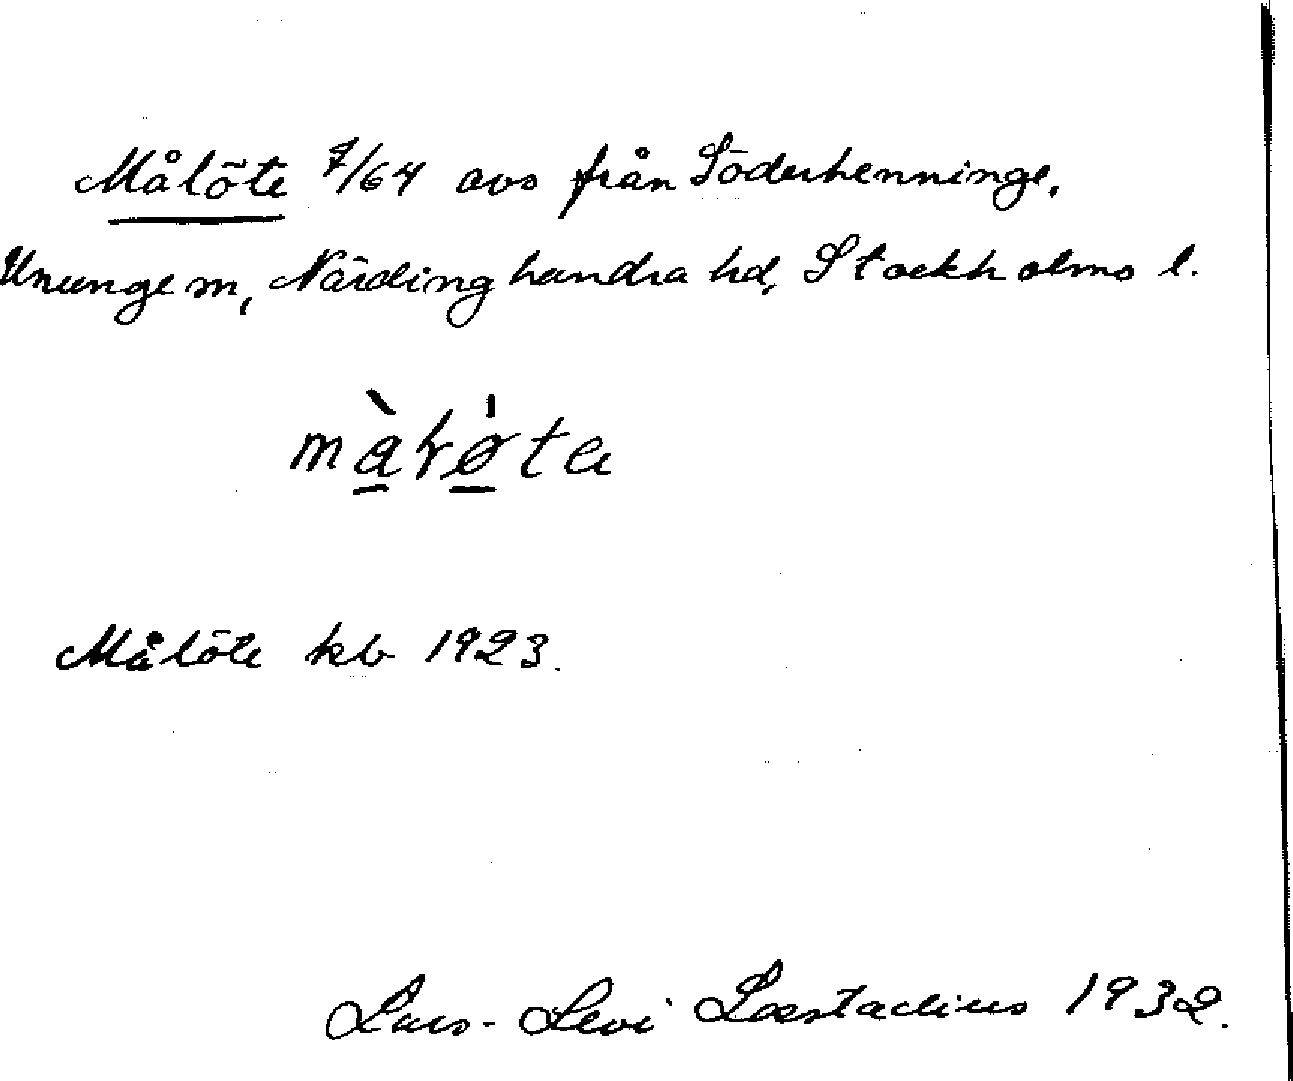 Målöte 7/64 avs från Söderhenninge,
Ununge sn, Närdinghundra hd, Stockholms l.
Målöte kb 1923.
Lars-Levi Læstadius 1932.